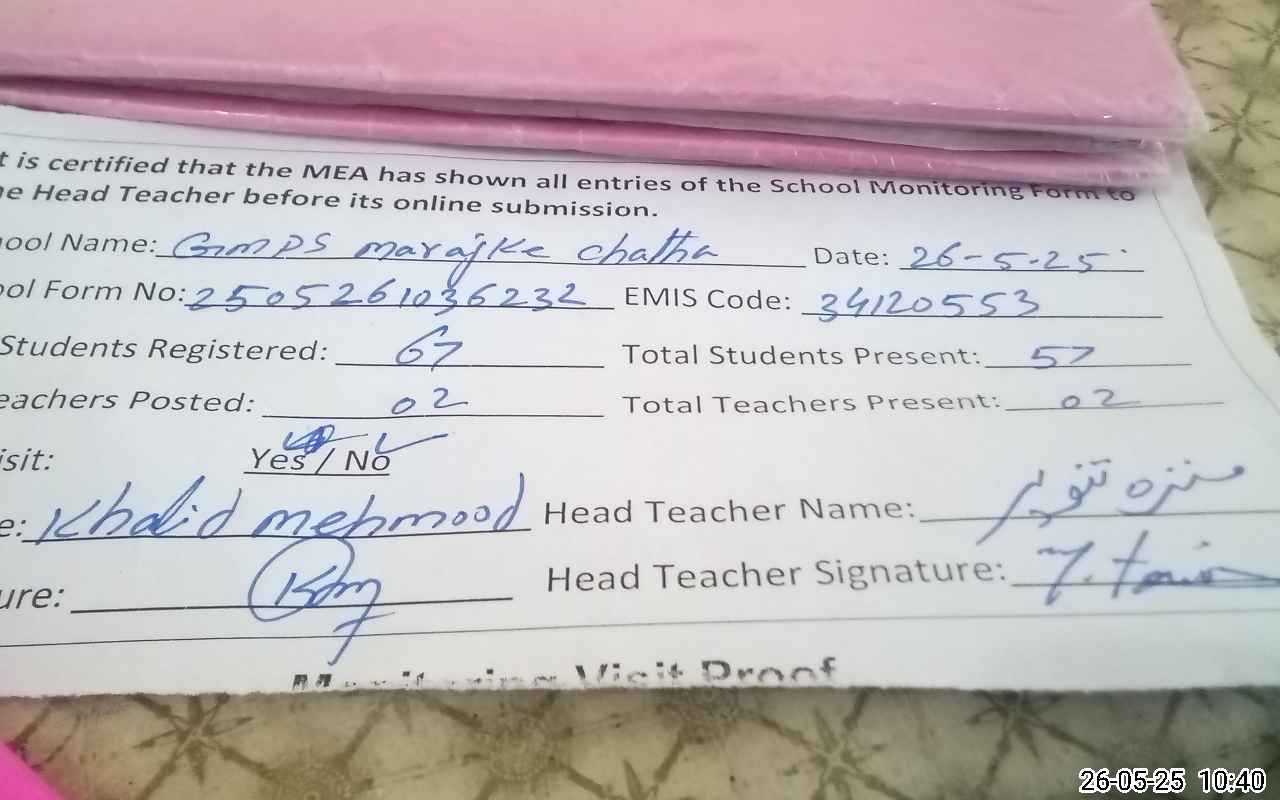 t is certified that the MEA has shown all entries of the School Monitoring Form to
e Head Teacher before its online submission.
ool Name: GMPS marajke chatha Date: 26-5-25
ol Form No: 2505261036232 EMIS Code: 34120553
Students Registered: 67 Total Students Present: 57
eachers Posted: 02 Total Teachers Present: 02
isit: Yes / No
e: Khalid mehmood Head Teacher Name: منزہ تنویر
ure: Head Teacher Signature:
Monitoring Visit Proof
26-05-25 10:40